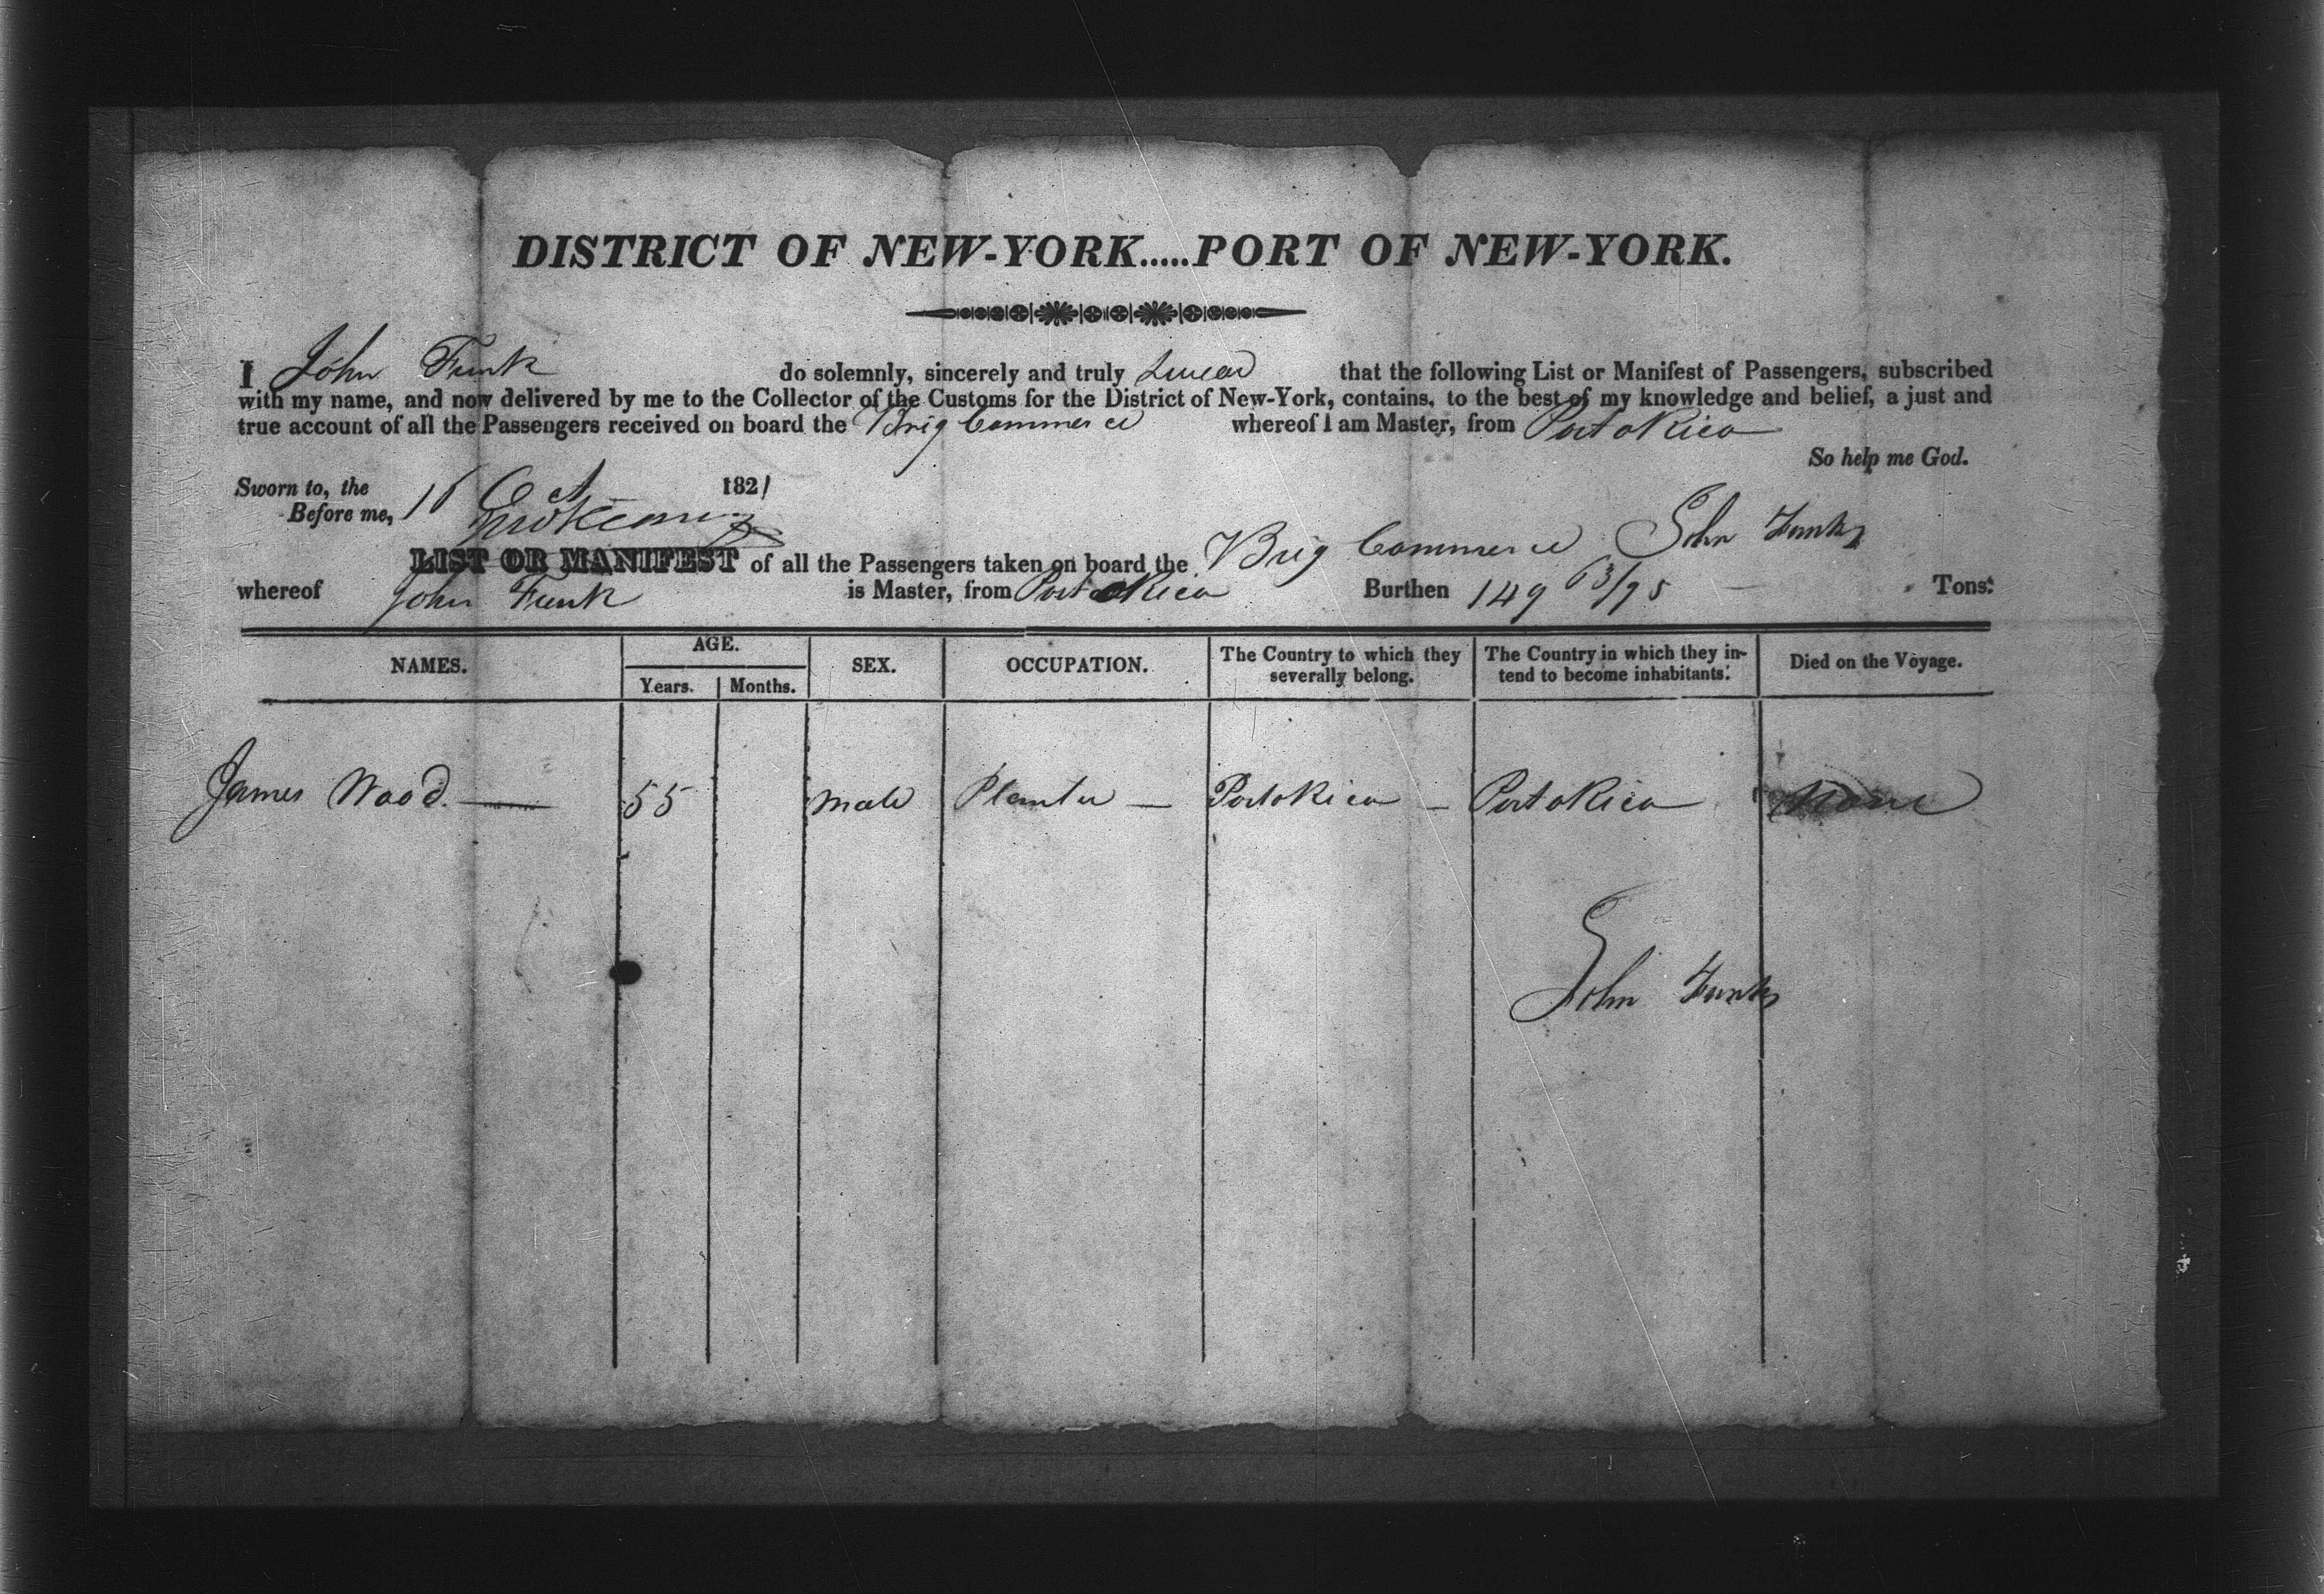 DISTRICT OF NEW-YORK.....PORT OF NEW-YORK.
I John Funk do solemnly, sincerely and truly Swear that the following List or Manifest of Passengers, subscribed
with my name, and now delivered by me to the Collector of the Customs for the District of New-York, contains, to the best of my knowledge and belief, a just and
true account of all the Passengers received on board the Brig Commerce whereof I am Master, from Porto Rico
So help me God.
Sworn to, the 16 Oct 1821
Before me,
John Funk
LIST OR MANIFEST of all the Passengers taken on board the Brig Commerce
whereof John Funk is Master, from Porto Rico Burthen 149 63/95 Tons.
NAMES. AGE. SEX. OCCUPATION. The Country to which they severally belong. The Country in which they intend to become inhabitants. Died on the Voyage.
Years. Months.
James Wood. — 55 male Planter — Porto Rico — Porto Rico None
John Funk